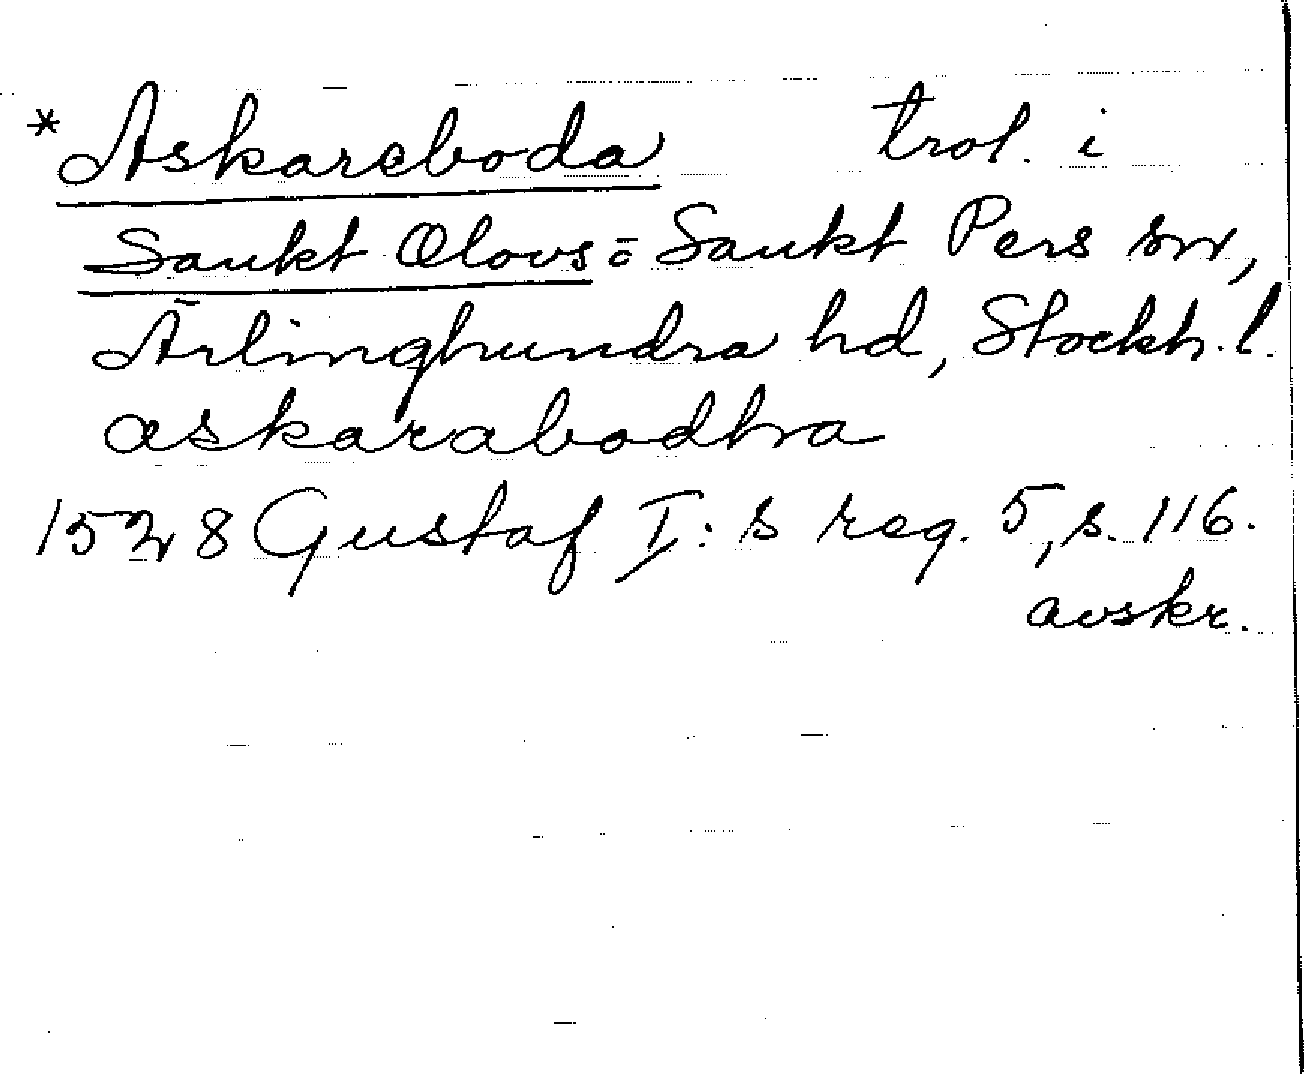 *Askareboda trol. i
Sankt Olovs = Sankt Pers sn,
Ärlinghundra hd, Stockh. l.
askarabodhra
1528 Gustaf I:s reg. 5, s. 116.
avskr.